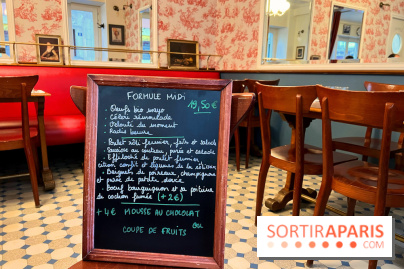 FORMULE MIDI
19,50€
. Oeufs bio mayo
. Céleri rémoulade
. Velouté du moment
. Radis beurre
. Poulet rôti fermier, frites et salade
. Saucisse au couteau, purée et salade
. Effiloché de poulet fermier,
citron confit et légumes de la saison
. Beignets de poireaux, champignons
et purée de patate douce
. Boeuf bourguignon et sa poitrine
de cochon fumée (+2€)
+4€ MOUSSE AU CHOCOLAT
OU
COUPE DE FRUITS
SORTIRAPARIS
.COM